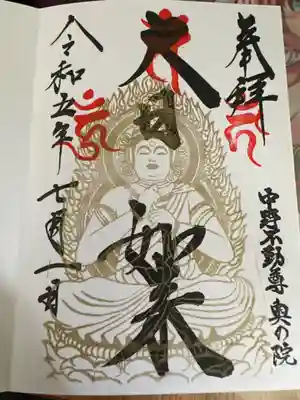 奉拝
中野不動尊 奥の院
大日如来
令和五年 七月一日